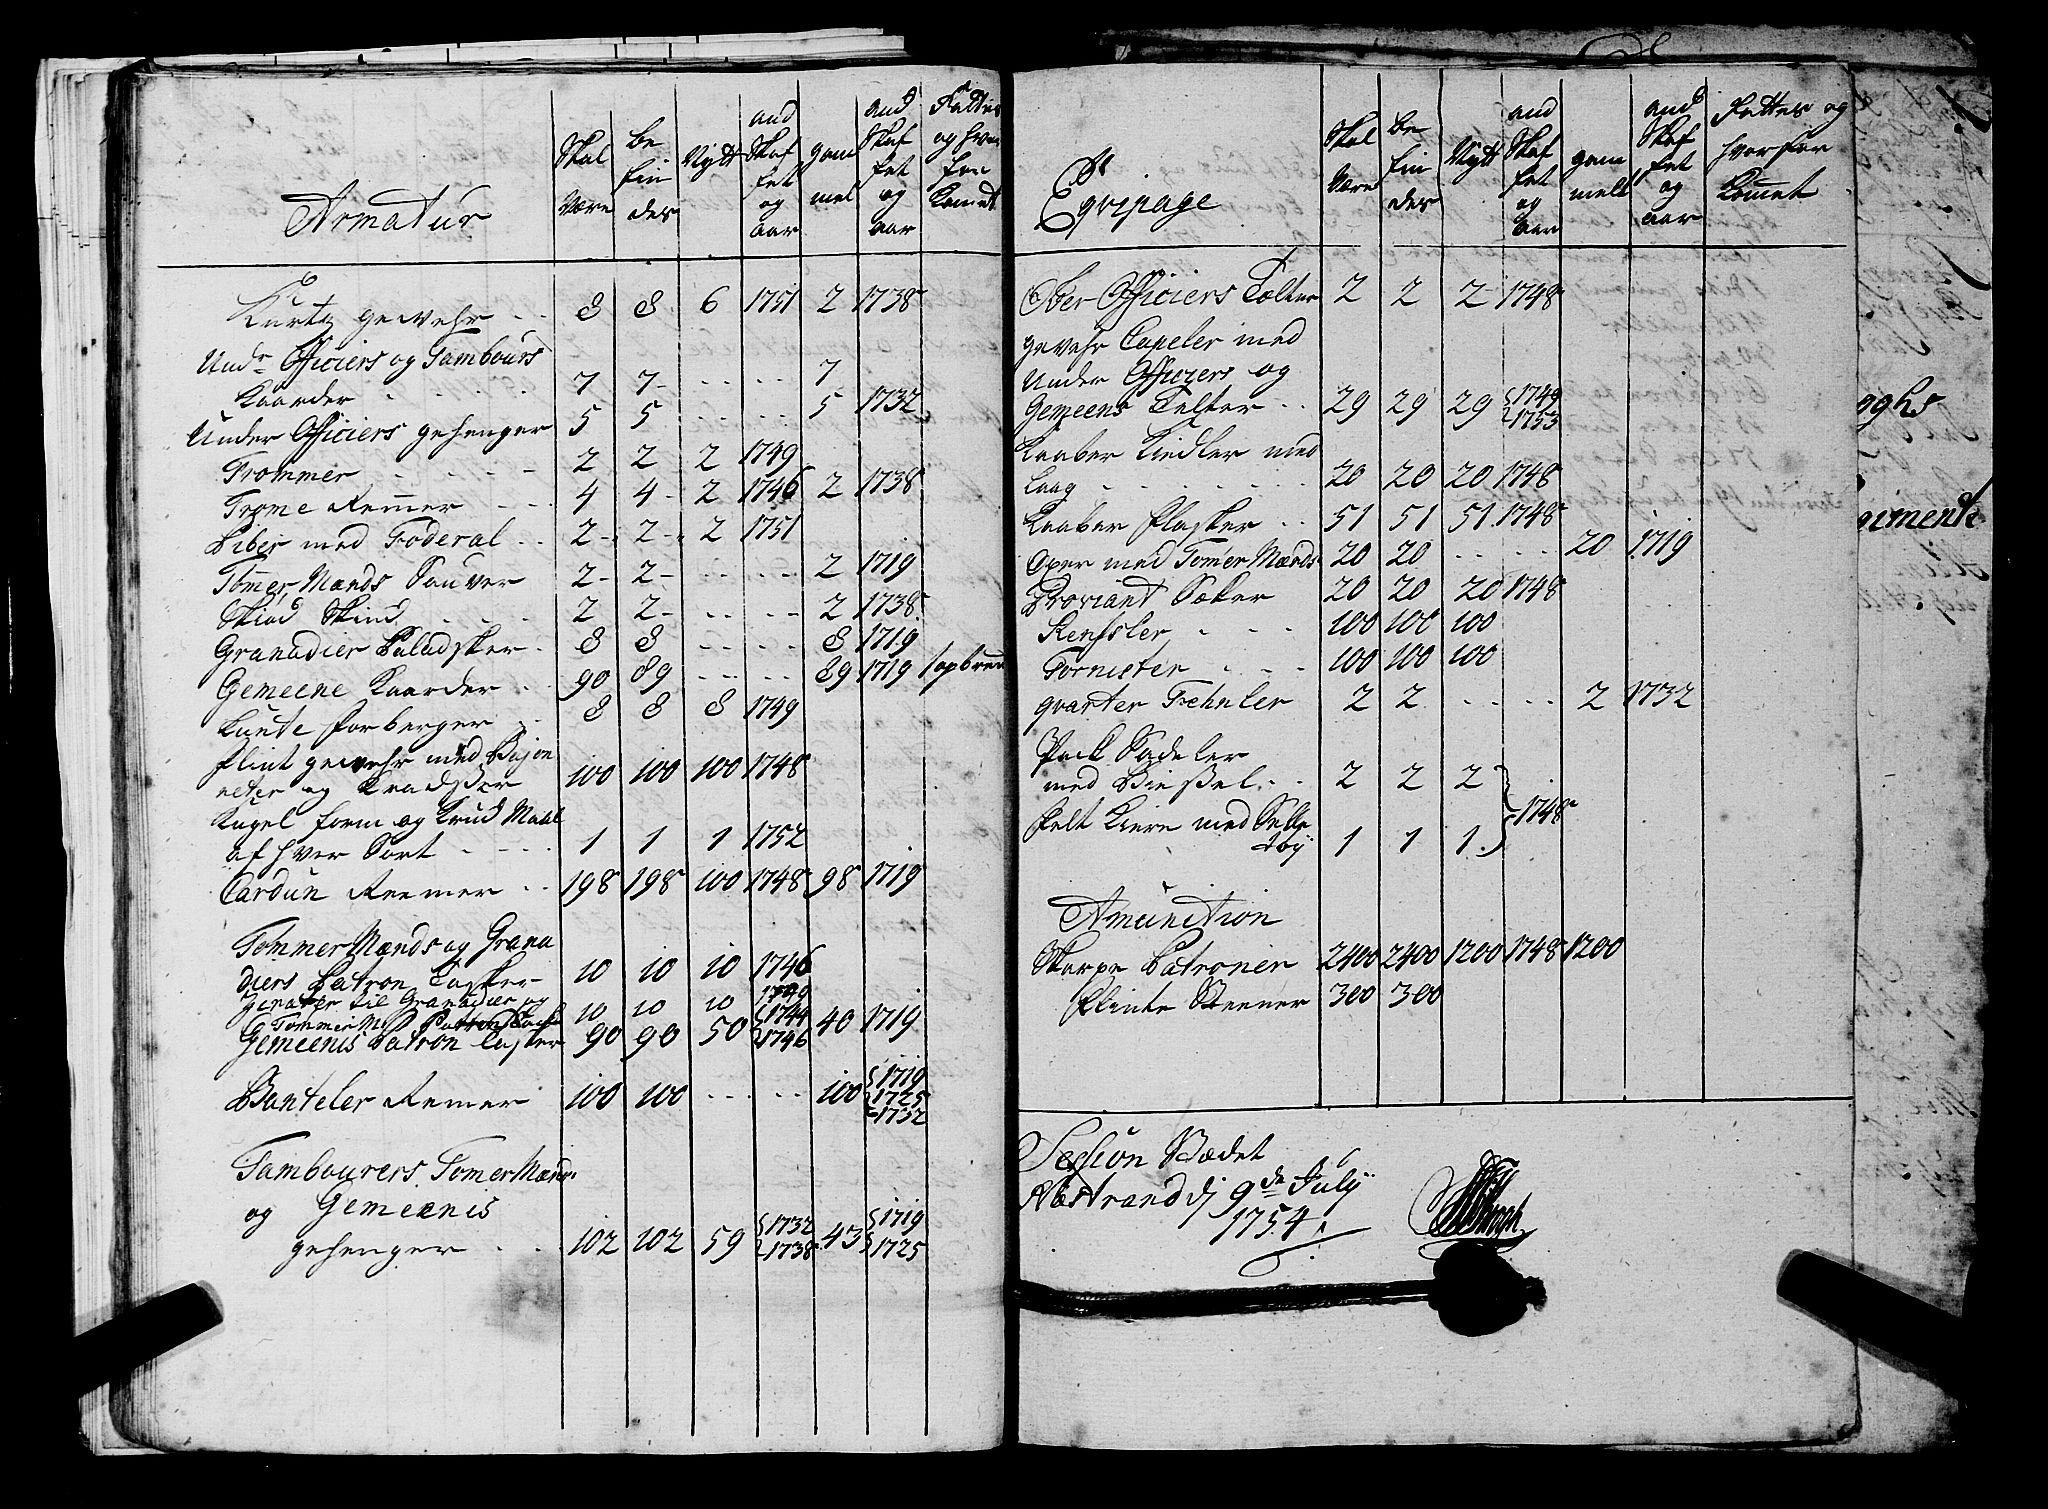 Armatur
Skal Være | be fin des | Nytt | and Skaf fet og aar | gam mel | and Skaf fet og aar | Fattes og hvor for Komet
Kurtz gewehr 8 8 6 1751 2 1738
Undr Officiers og Tambours
Kaarder 7 7 7
Under Officiers gehenger 5 5 5 1732
Trommer 2 2 2 1749
Trome Remer 4 4 2 1746 2 1738
Piber med Foderal 2 2 2 1751
Tomer Mænds Sauver 2 2 2 1719
Skiød Skind 2 2 2 1738
Granadier Paladsker 8 8 8 1719
Gemeene Kaarder 90 89 89 1719
Lunte forberger 8 8 8 1749
Flint gewehr med Bajon
neter og Kradser 100 100 100 1748
Kugel form og Krud Maal
af hver Sort 1 1 1 1752
Cardun Reemer 198 198 100 1748 98 1719
Tommer Mænds og Grana
diers Patron Tasker 10 10 10 1746
til Granadier og 1749
Tommer M: Patron Task 10 10 10 1744
Gemeenis Patron Tasker 90 90 50 1746 40 1719
Banteler Remer 100 100 100 1719
1725
1732
Tambourers, Tomer Mænds
og Gemeenis
gehenger 102 102 59 1732 1738 43 1719 1725
Eqvipage
Skal Være | be fin des | Nytt | and Skaf fet og aar | gam melt | and Skaf fet og aar | Fattes og hvorfor Komet
Ober Officiers Telter 2 2 2 1748
gevehr Capeler med
Under Officiers og
Gemeens Telter 29 29 29 1749 1753
Kaaber Kiedler med
Laag 20 20 20 1748
Kaaber Flasker 51 51 51 1748
Oxer med Tomer Mænds 20 20 20 1719
Proviant Sæker 20 20 20 1748
Rentsler 100 100 100
Tornister 100 100 100
qvarter Fehnler 2 2 2 1732
Pack Sadeler
med 2 2 2
Felt Kiere med Selle
tøy 1 1 1 1748
Amunition
Skarpe Patroner 2400 2400 1200 1748 1200
Flinte Steener 300 300
Session Stædet
Næstrand dj 9de July
1754